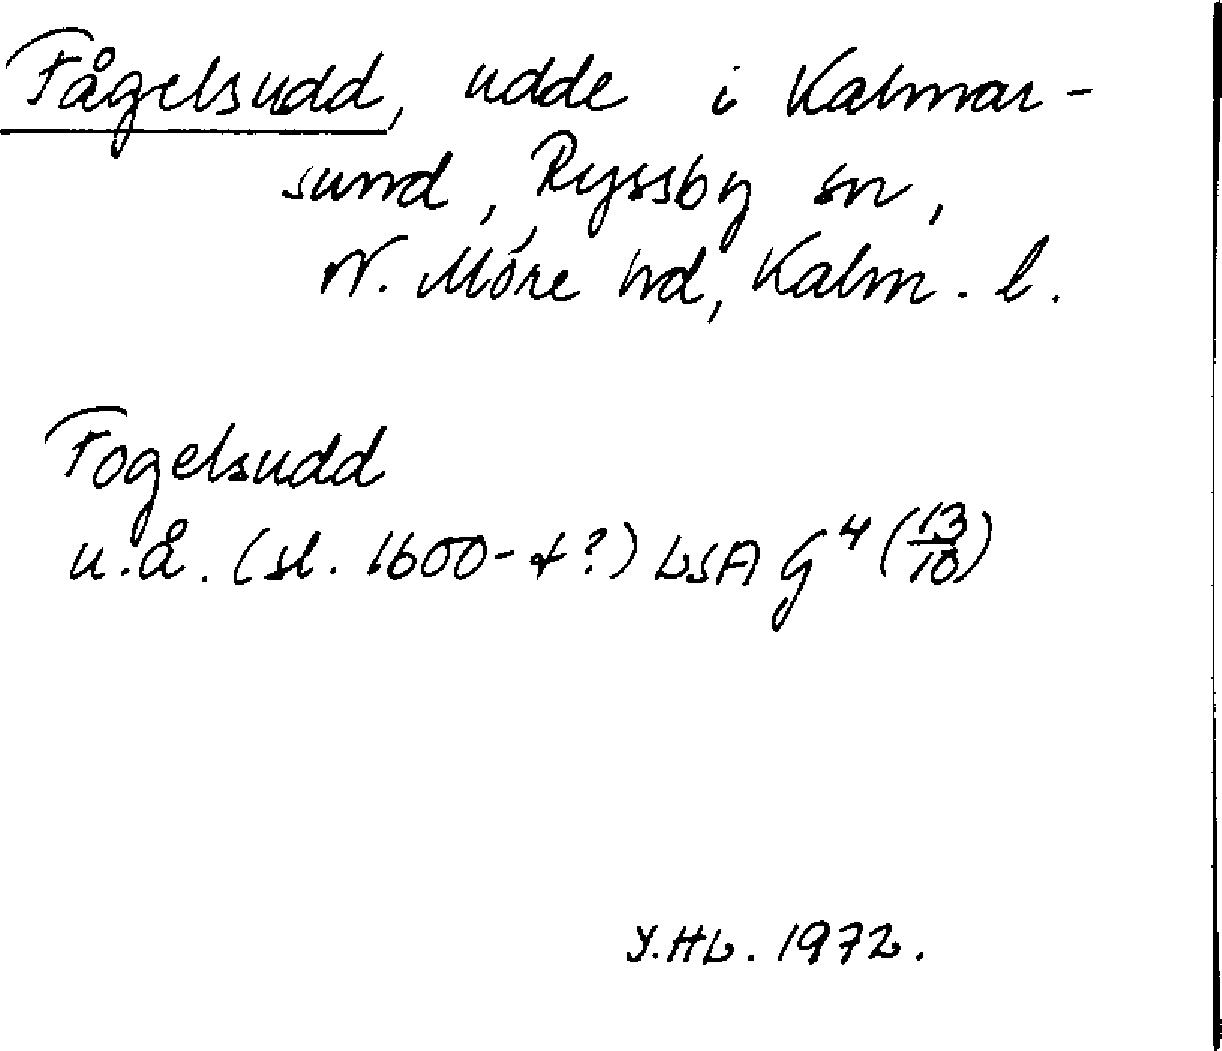 Fågelsudd, udde i Kalmar-
sund, Ryssby sn,
N. Möre hd, Kalm. l.
Fogelsudd
u.å. (sl. 1600-t?) LSA G⁴ (13/10)
Y.HL. 1972.